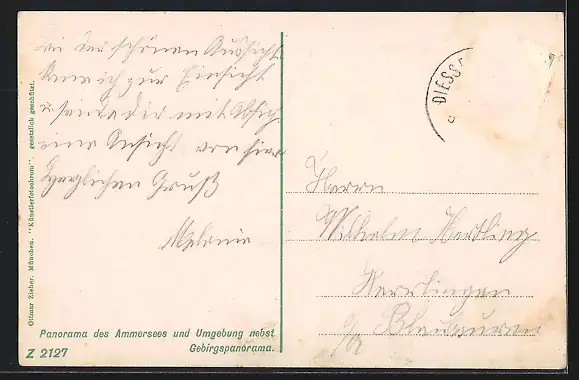 bei der schönen Aussicht
kam ich zur Einsicht
u. sende dir mit Absich
eine Ansicht von hier
Herzlichen Gruß
Melanie
Ottmar Zieher, München. "Künstlerfotochrom". gesetzlich geschützt.
Panorama des Ammersees und Umgebung nebst
Gebirgspanorama.
Z 2127
DIESS
Herrn
Wilhelm Hertling
Herrlingen
Blaubeuren